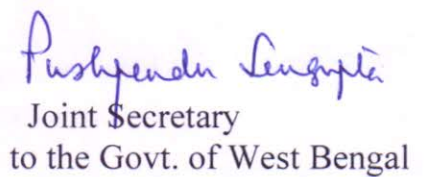 Pushpendu Sengupta
Joint Secretary
to the Govt. of West Bengal